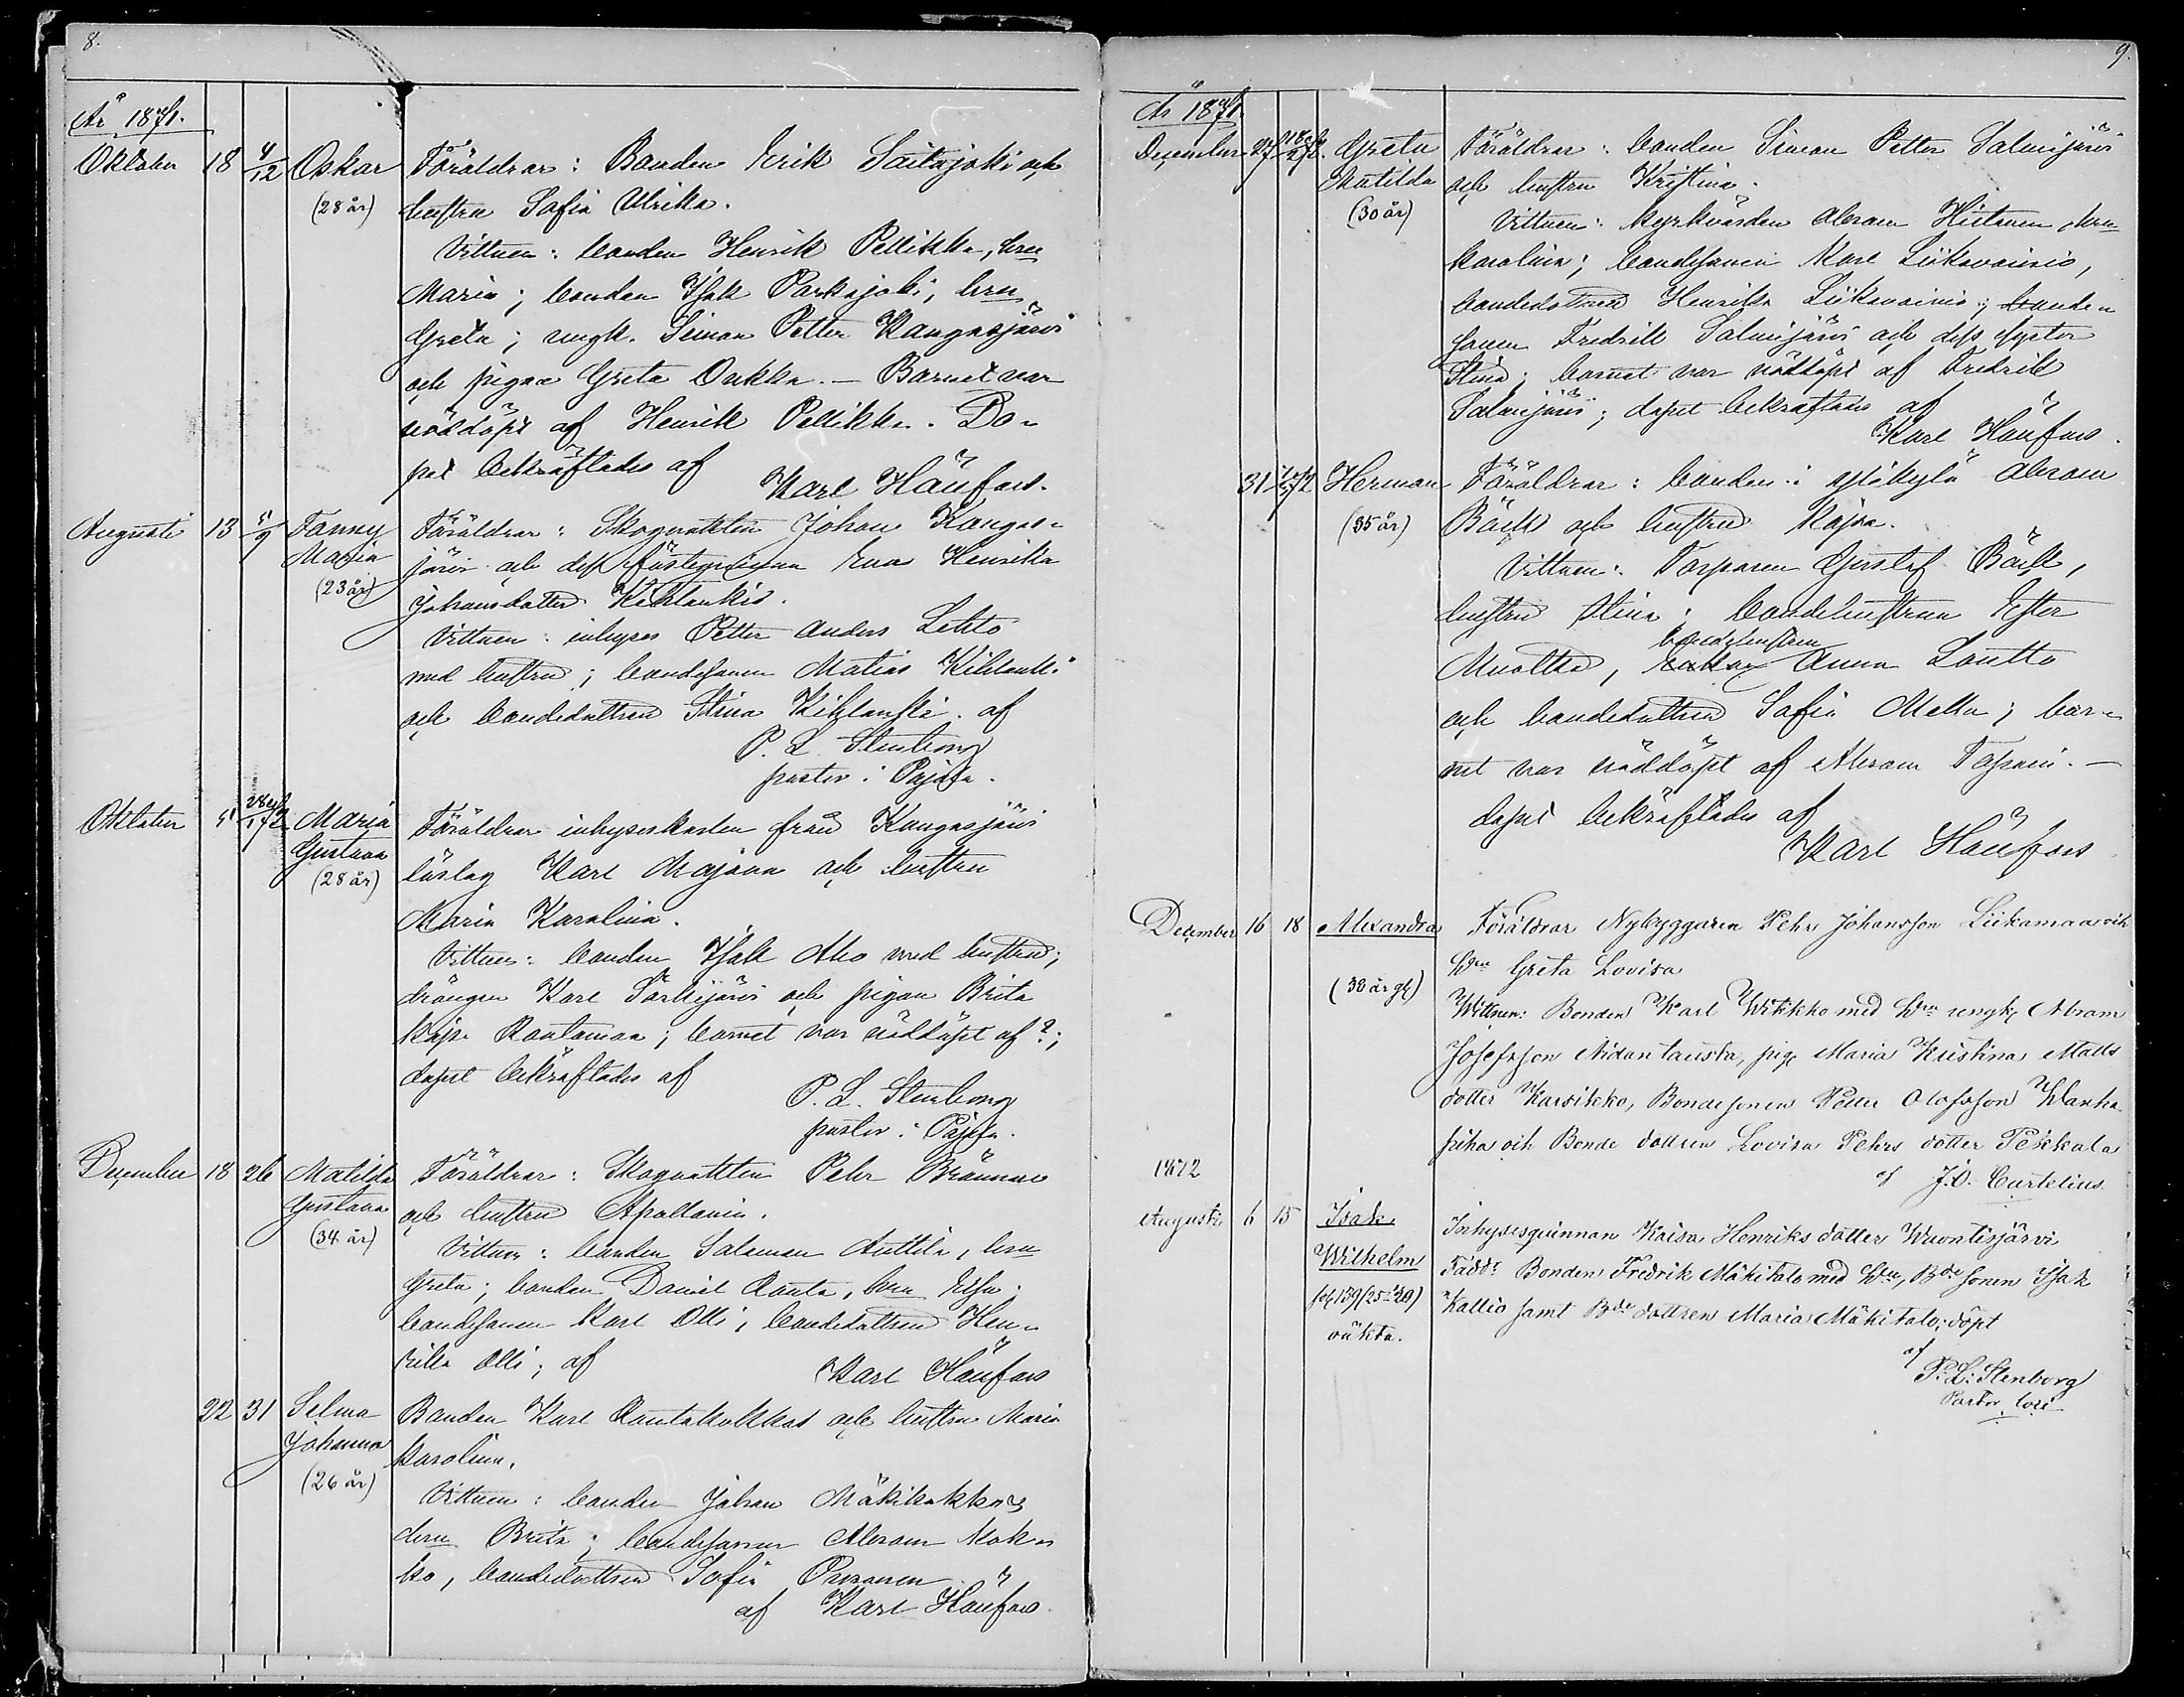 8.
År 1871.
Oktober 18 4/12 Oskar (28 år) Föräldrar: Bonden Erik Saitajoki och
hustru Sofia Ulrika.
Vittnen: bonden Henrik Pellikka, hru
Maria; bonden Isak Parkajoki, hru
Greta; ungk. Simon Petter Kangasjärvi
och pigan Greta Onkka. – Barnet var
nöddöpt af Henrik Pellikka. Do-
pet bekräftades af
Karl Hänfors.
Augusti 13 5/9 Fanny Maria (23 år) Föräldrar: Skogvakten Johan Kangas-
järvi och dess fästeqvinna Eva Henrika
Johansdotter Kihlankis.
Vittnen: inhyses Petter Anders Lehto
med hustru; bondesonen Matias Kihlanki
och bondedottren Stina Kihlanki. af
P. L. Stenborg
pastor i Pajala.
Oktober 5 28/1 72 Maria Gustava (28 år) Föräldrar inhyseskarlen från Kangasjärvi
Karl Majava och hustru
Maria Karolina.
Vittnen: bonden Isak Aho med hustru;
drängen Karl Särkijärvi och pigan Brita
Kajsa Rautamaa; barnet var nöddöpt af ?;
dopet bekräftades af
P. L. Stenborg
pastor i Pajala.
December 18 26 Matilda Gustava (34 år) Föräldrar: Skogvakten Pehr Brännare
och hustru Apollonia.
Vittnen: bonden Salomon Anttila, hru
Greta; bonden Daniel Ranta, hru Elsa;
bondesonen Karl Olli, bondedottren Hen-
rika Olli; af
Karl Hänfors
22 31 Selma Johanna (26 år) Bonden Karl Rantakokkos och hustru Maria
Karolina.
Vittnen: bonden Johan Mäkikokkos
hru Brita; bondesonen Abram Kok-
ko, bondedottren Sofia
af Karl Hänfors.
9.
År 1871.
December 27 Greta Matilda (30 år) Föräldrar: bonden Simon Petter Salmijärvi
och hustru Kristina.
Vittnen: kyrkvärden Abram Hietanen, hru
Karolina; bondesonen Karl Liikavainio,
bondedottren Henrika Liikavainio; bonde-
sonen Fredrik Salmijärvi och dess syster
Stina; barnet var nöddöpt af Fredrik
Salmijärvi; dopet bekräftades af
Karl Hänfors.
31 Herman (35 år) Föräldrar: bonden i Sjökylä Abram
Bäck och hustru Kajsa.
Vittnen: Torparen Gustaf Bäck,
hustru Stina; bondehustrun Ester
bondehustrun
Muotka, Anna Loutto
och bondedottren Sofia Metta; bar-
net var nöddöpt af Abram Tapani. –
dopet bekräftades af
Karl Hänfors
December 16 18 Alexandra (38 år gl) Föräldrar Nybyggaren Pehr Johansson Liikamaa och
Hru Greta Lovisa
Wittnen: Bonden Karl Witikko med Hru ungk. Abram
Josefsson Aidantausta, pig. Maria Kristina Matts
dotter Karsikko, Bondesonen Petter Olofsson Wanha
piha och Bonde dottren Lovisa Pehrs dotter Pekkala
af J.O. Curtelius
1872
Augusti 6 15 Isak Wilhelm fol. 159 (25–30) oäkta. Inhysesqvinnan Kaisa Henriks dotter Wuontisjärvi
Faddr Bonden Fredrik Mäkitalo med Hru, Bde sonen Isak
Kallio samt Bde dottren Maria Mäkitalo; döpt
af
P. L. Stenborg
Pastor loci